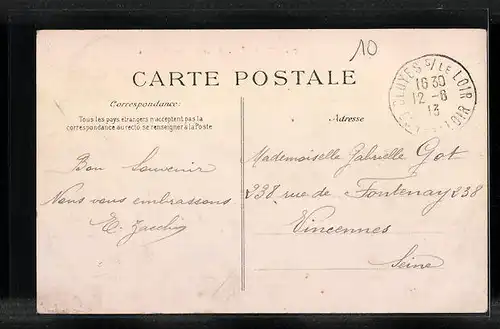 10
CARTE POSTALE
CLOYES S/ LE LOIR
16 30
12 -8
13
LOIR
Correspondance:
Tous les pays étrangers n'acceptent pas la
correspondance au recto se renseigner à la Poste
Adresse
Bon Souvenir
Nous vous embrassons
Mademoiselle Gabrielle Got
238 rue de Fontenay 238
Vincennes
Seine